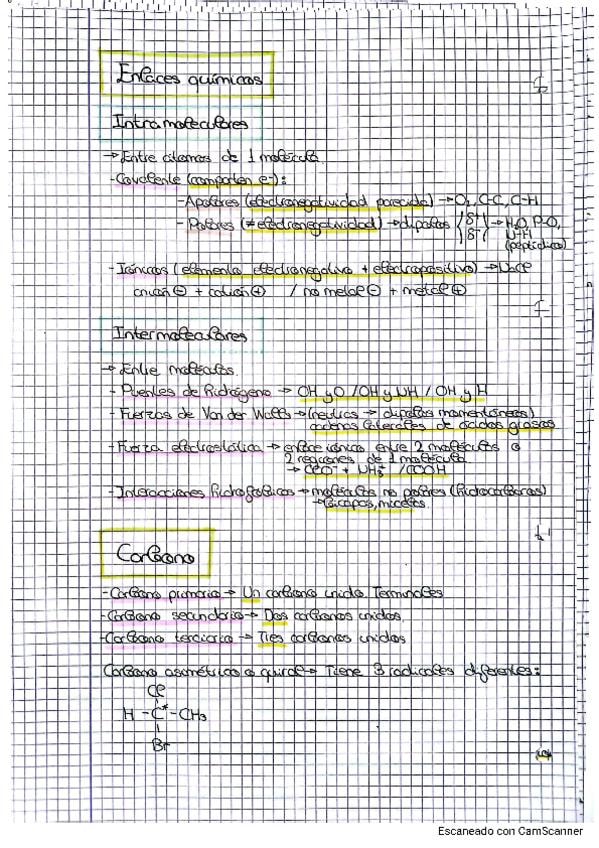 Enlaces químicos
Intramoleculares
→ Entre átomos de 1 molécula.
- Covalente (comparten e-):
- Apolares (electronegatividad parecida) → O₂, C-C, C-H
- Polares (≠ electronegatividad) → dipolos {δ+ δ-} → H₂O, P-O,
N-H
(peptídico)
- Iónicos (elemento electronegativo + electropositivo) → NaCl
anión ⊖ + catión ⊕ / no metal ⊖ + metal ⊕
Intermoleculares
→ Entre moléculas.
- Puentes de hidrógeno → OH y O / OH y NH / OH y H
- Fuerzas de Van der Walls → (neutros → dipolos momentáneos)
cadenas laterales de ácidos grasos
- Fuerza electrostática → enlace iónico entre 2 moléculas o
2 regiones de 1 molécula
→ COO⁻ + NH₃⁺ / COOH
- Interacciones hidrofóbicas → moléculas no polares (hidrocarburos)
→ bicapas, micelas.
Carbono
- Carbono primario → Un carbono unido. Terminales
- Carbono secundario → Dos carbonos unidos.
- Carbono terciario → Tres carbonos unidos
Carbono asimétrico o quiral → Tiene 3 radicales diferentes:
Cl
H - C* - CH₃
Br
Escaneado con CamScanner